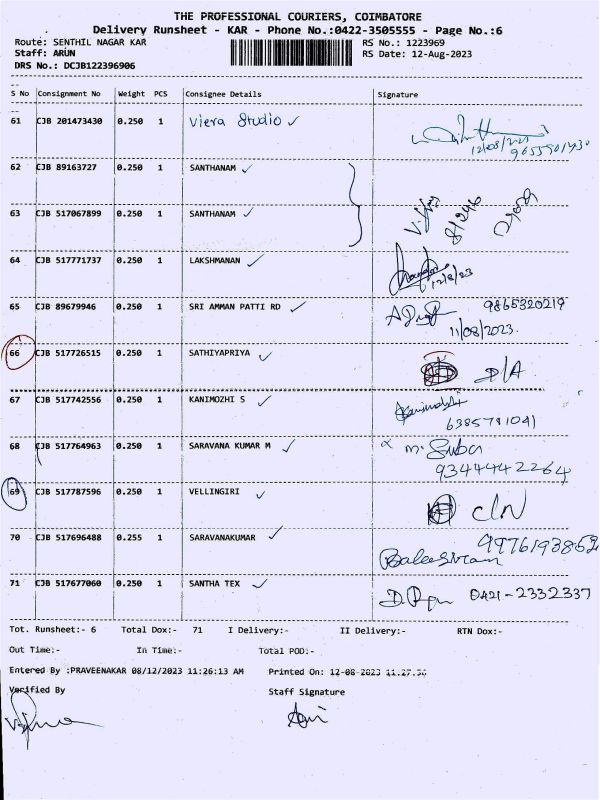 THE PROFESSIONAL COURIERS, COIMBATORE
Delivery Runsheet - KAR - Phone No.:0422-3505555 - Page No.:6
Route: SENTHIL NAGAR KAR RS No.: 1223969
Staff: ARUN RS Date: 12-Aug-2023
DRS No.: DCJB122396906
S No Consignment No Weight PCS Consignee Details Signature
61 CJB 201473430 0.250 1 Viera Studio ✓
62 CJB 89163727 0.250 1 SANTHANAM ✓
63 CJB 517067899 0.250 1 SANTHANAM ✓
64 CJB 517771737 0.250 1 LAKSHMANAN ✓ 12/8/23
65 CJB 89679946 0.250 1 SRI AMMAN PATTI RD ✓ 9865320219
11/08/2023.
66 CJB 517726515 0.250 1 SATHIYAPRIYA ✓ D/A
67 CJB 517742556 0.250 1 KANIMOZHI S ✓ Kanimozhi
6385781041
68 CJB 517764963 0.250 1 SARAVANA KUMAR M ✓ m. Suba
9344442264
69 CJB 517787596 0.250 1 VELLINGIRI ✓ C/N
70 CJB 517696488 0.255 1 SARAVANAKUMAR ✓ 9976193852
71 CJB 517677060 0.250 1 SANTHA TEX ✓ 0421-2332337
Tot. Runsheet:- 6 Total Dox:- 71 I Delivery:- II Delivery:- RTN Dox:-
Out Time:- In Time:- Total POD:-
Entered By :PRAVEENAKAR 08/12/2023 11:26:13 AM Printed On: 12-08-2023 11:27:36
Verified By Staff Signature